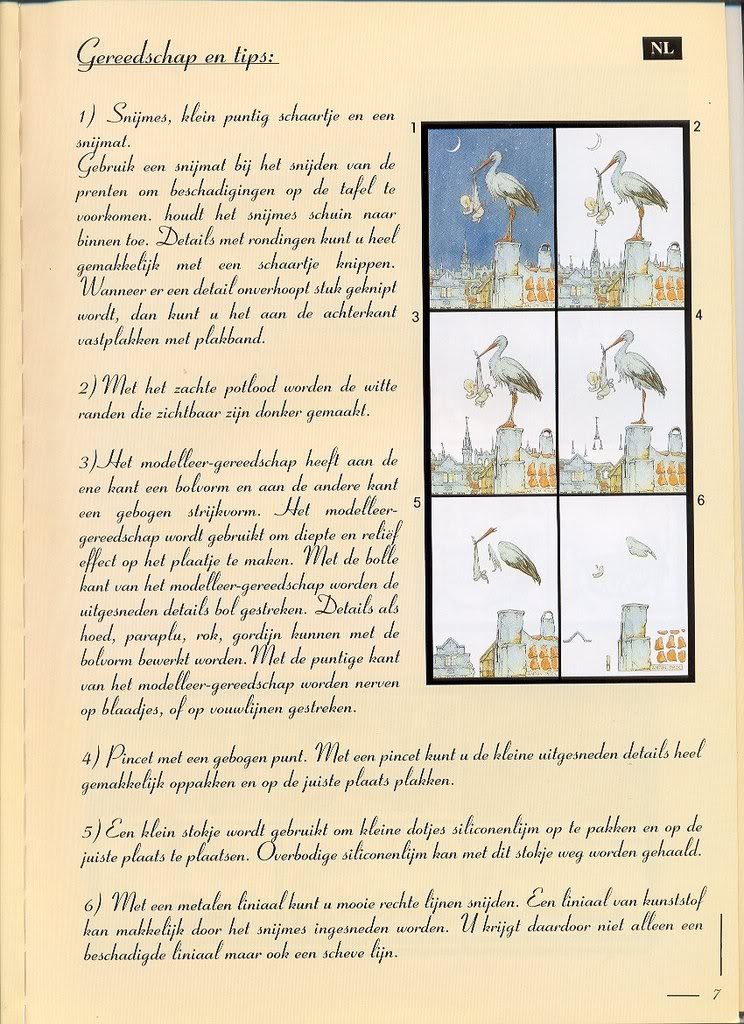 Gereedschap en tips:
NL
1) Snijmes, klein puntig schaartje en een
snijmat.
Gebruik een snijmat bij het snijden van de
prenten om beschadigingen op de tafel te
voorkomen. houdt het snijmes schuin naar
binnen toe. Details met rondingen kunt u heel
gemakkelijk met een schaartje knippen.
Wanneer er een detail onverhoopt stuk geknipt
wordt, dan kunt u het aan de achterkant
vastplakken met plakband.
2) Met het zachte potlood worden de witte
randen die zichtbaar zijn donker gemaakt.
3) Het modelleer-gereedschap heeft aan de
ene kant een bolvorm en aan de andere kant
een gebogen strijkvorm. Het modelleer-
gereedschap wordt gebruikt om diepte en reliëf
effect op het plaatje te maken. Met de bolle
kant van het modelleer-gereedschap worden de
uitgesneden details bol gestreken. Details als
hoed, paraplu, rok, gordijn kunnen met de
bolvorm bewerkt worden. Met de puntige kant
van het modelleer-gereedschap worden nerven
op blaadjes, of op vouwlijnen gestreken.
1
2
3
4
5
6
4) Pincet met een gebogen punt. Met een pincet kunt u de kleine uitgesneden details heel
gemakkelijk oppakken en op de juiste plaats plakken.
5) Een klein stokje wordt gebruikt om kleine dotjes siliconenlijm op te pakken en op de
juiste plaats te plaatsen. Overbodige siliconenlijm kan met dit stokje weg worden gehaald.
6) Met een metalen liniaal kunt u mooie rechte lijnen snijden. Een liniaal van kunststof
kan makkelijk door het snijmes ingesneden worden. U krijgt daardoor niet alleen een
beschadigde liniaal maar ook een scheve lijn.
7